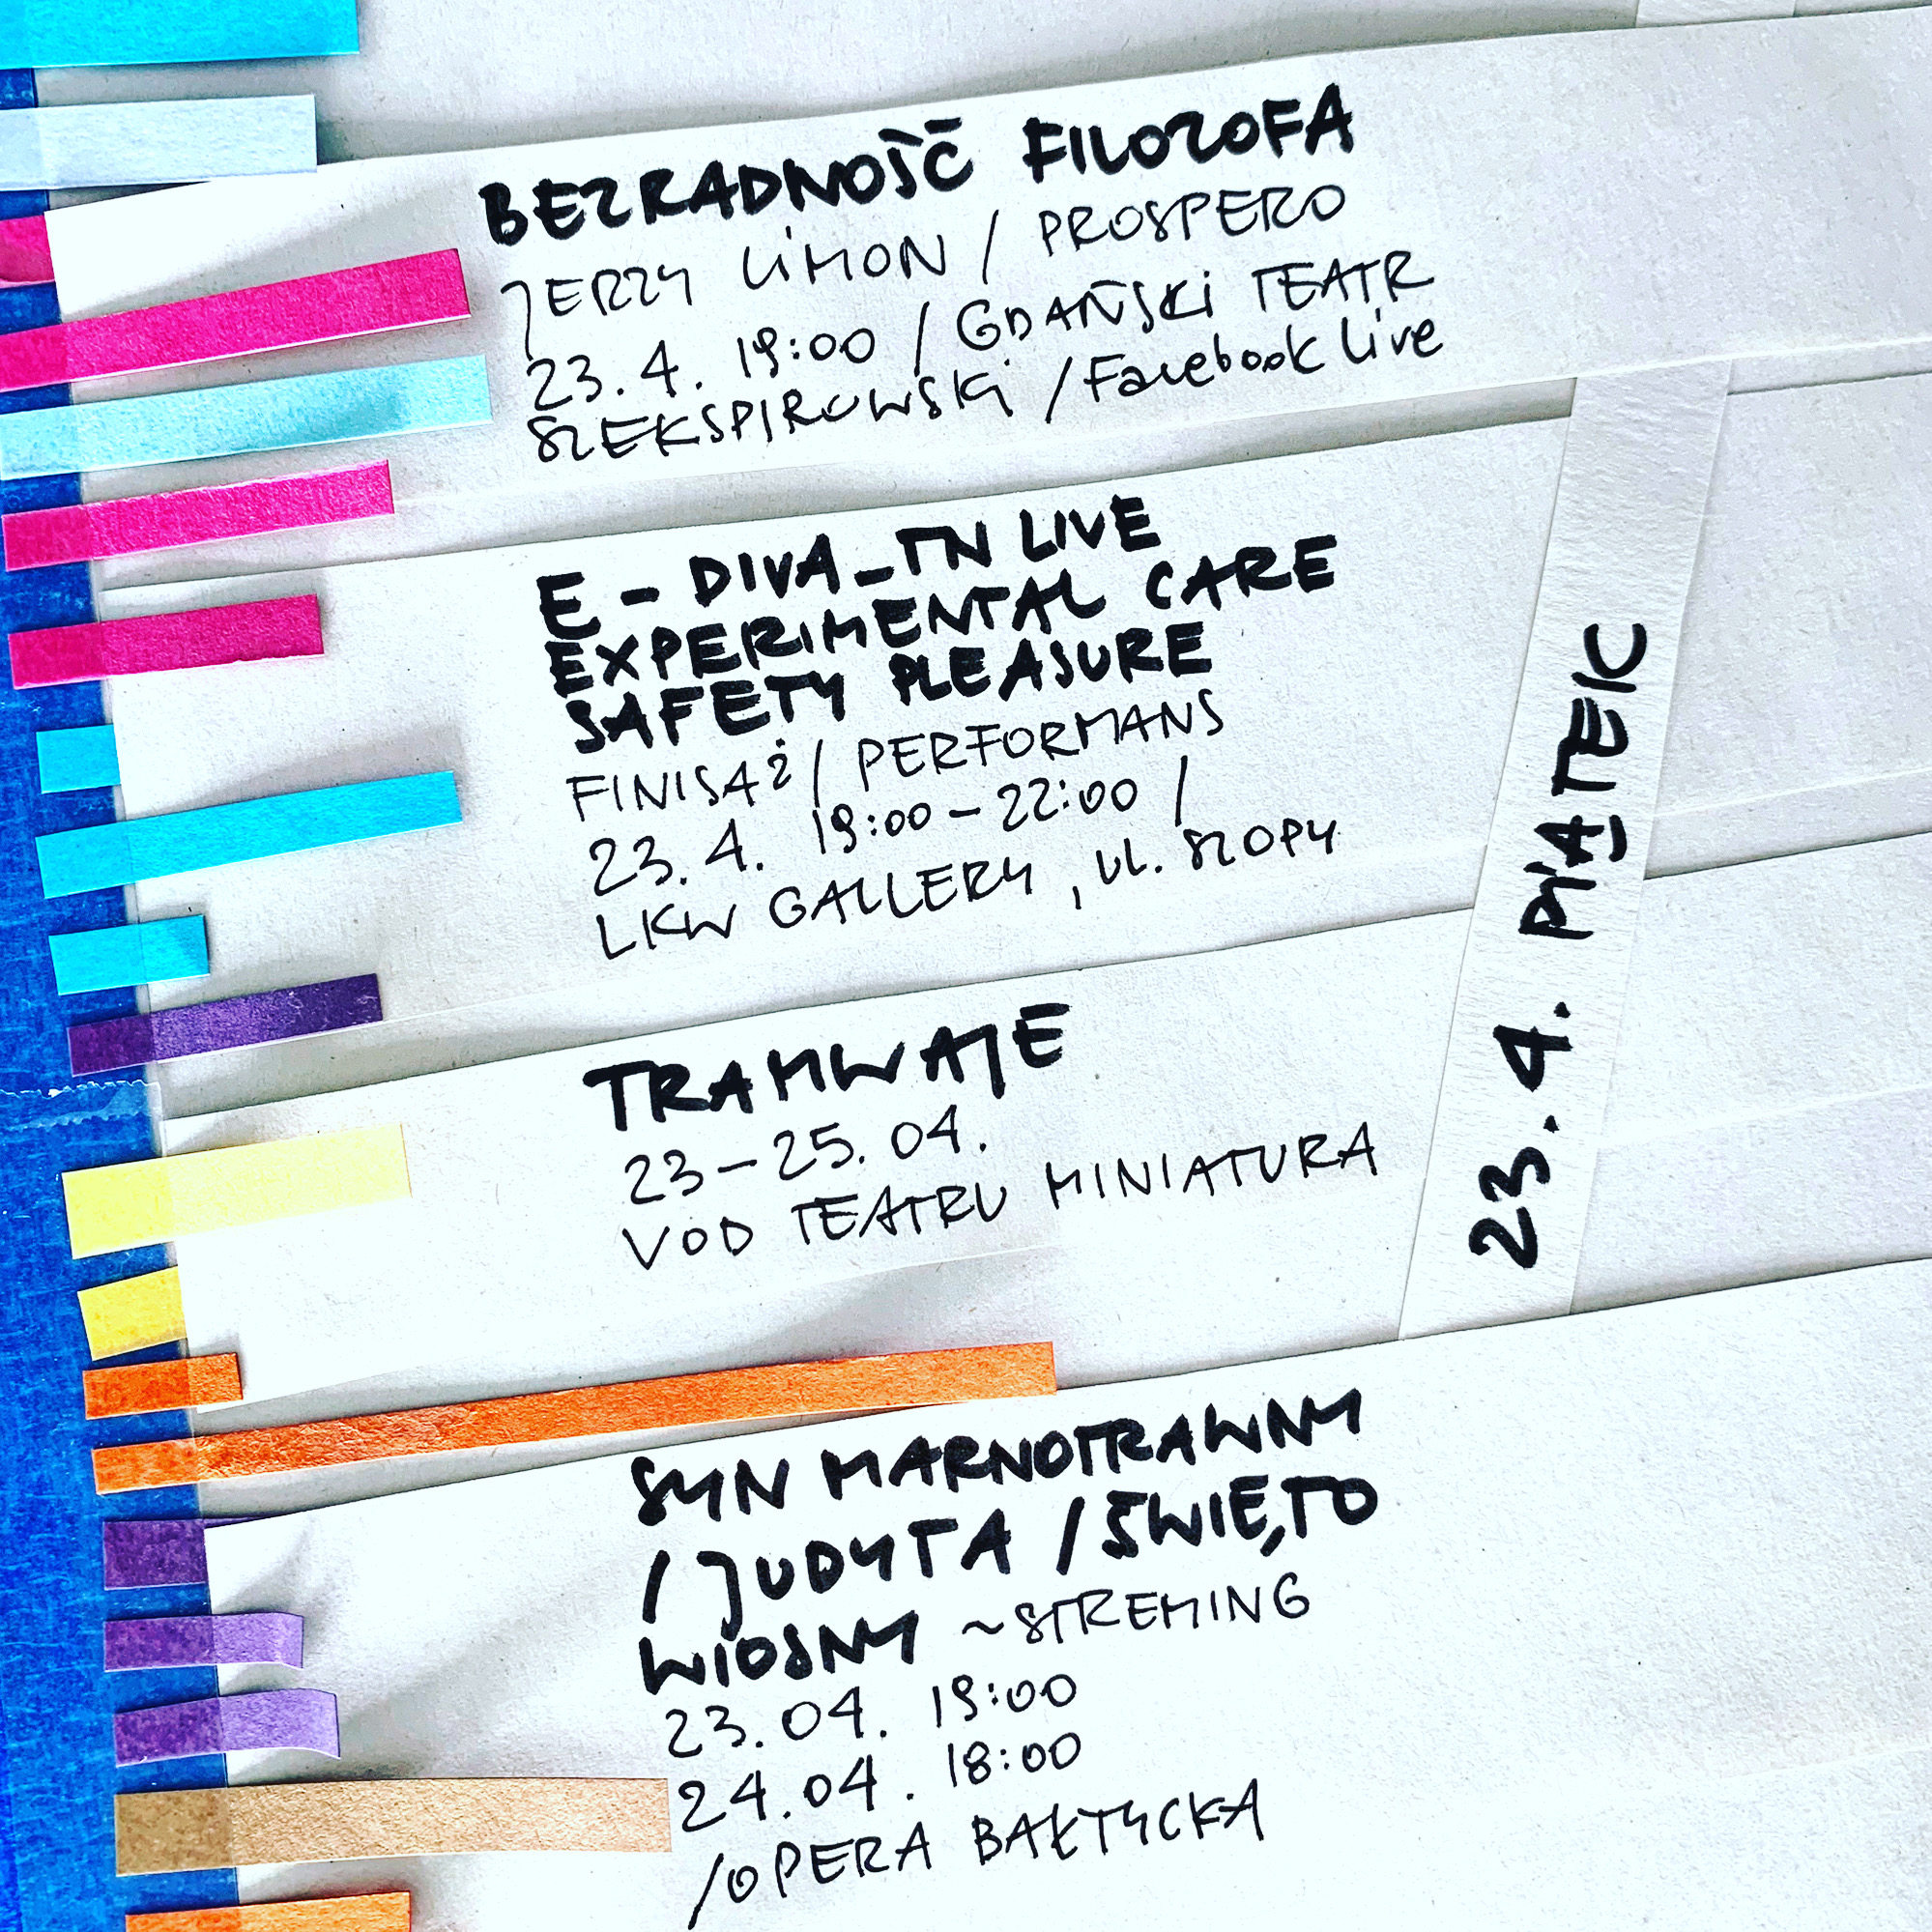 BEZRADNOŚĆ FILOZOFA
JERZY LIMON / PROSPERO
23.4. 19:00 / GDAŃSKI TEATR
SZEKSPIROWSKI / Facebook Live
E - DIVA_TN LIVE
EXPERIMENTAL CARE
SAFETY PLEASURE
FINISAŻ / PERFORMANS
23.4. 19:00 - 22:00 /
LKW GALLERY, UL. SZOPY
TRAMWAJE
23 - 25.04.
VOD TEATRU MINIATURA
SYN MARNOTRAWNY
/ JUDYTA / ŚWIĘTO
WIOSNY ~ STREMING
23.04. 19:00
24.04. 18:00
/ OPERA BAŁTYCKA
23.4. PIĄTEK